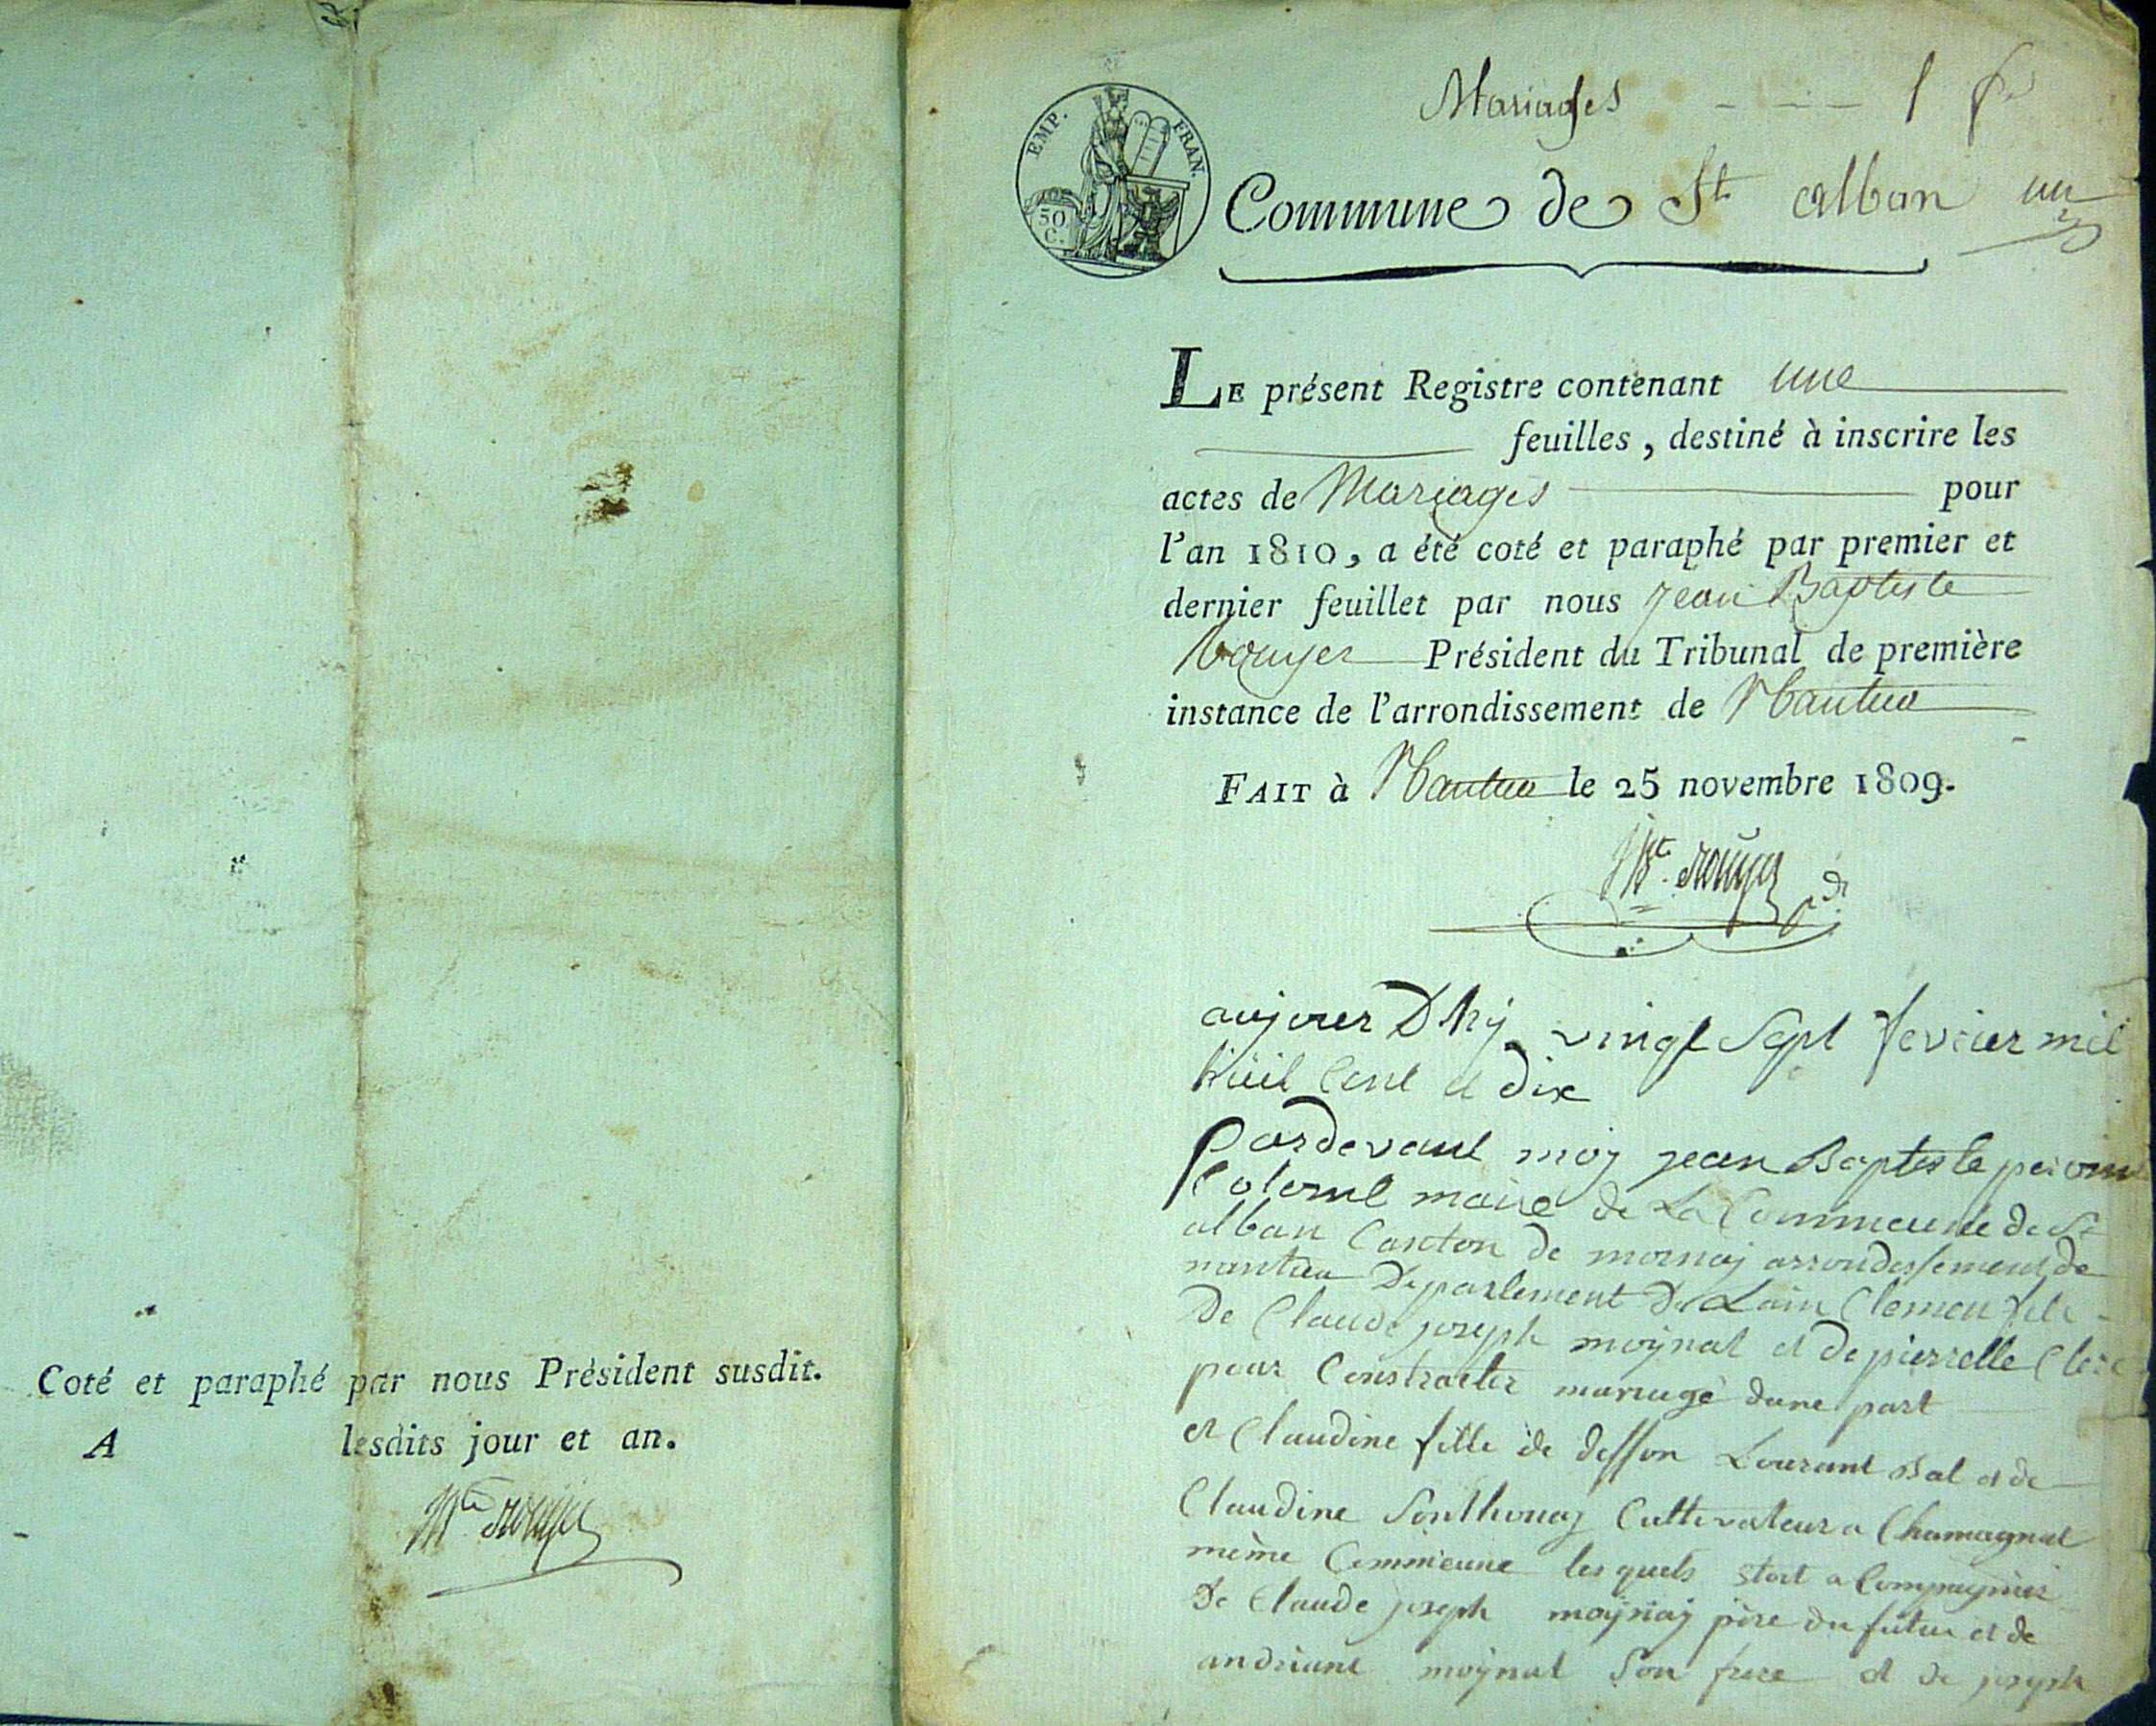 Coté et paraphé par nous Président susdit.
A lesdits jour et an.
Mariages 1 f
EMP. FRAN.
50 C.
Commune de St alban un
LE présent Registre contenant une
feuilles, destiné à inscrire les
actes de Mariages pour
l'an 1810, a été coté et paraphé par premier et
dernier feuillet par nous jean Baptiste
Président du Tribunal de première
instance de l'arrondissement de Nantua
FAIT à Nantua le 25 novembre 1809.
aujour Dhÿ vingt Sept fevrier mil
huit Cent et dix
Pardevant moy jean Baptiste
maire de La Commeune de St
alban Canton de arrondissement de
nantua Departement De Lain Clemen fils
De Claude joseph moÿnat et De pierrette Clerc
pour Constracter mariage dune part
et Claudine fille de deffon Lourant Bal et de
Claudine Sonthonaj Cultivateur a Chamagnat
même Commeune les quels a Compagniés
De Claude joseph moÿnaj père du futur et de
andriane moÿnat Son frere et de joseph